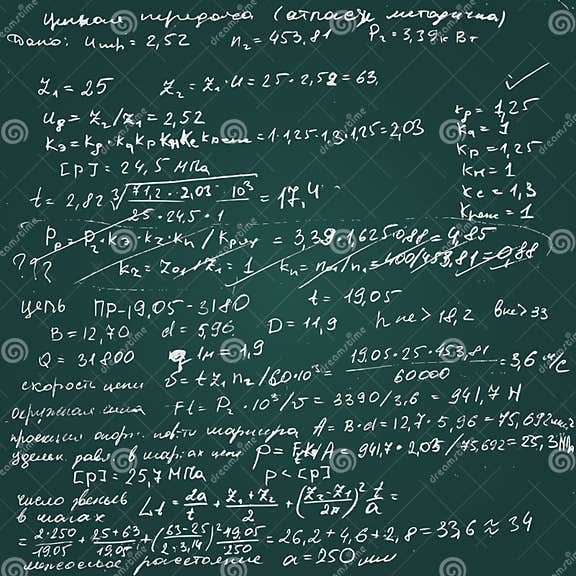 Цепная передача (
Дано: Uцп = 2,52   n₂ = 453,81   P₂ = 3,39 кВт
Z₁ = 25   Z₂ = Z₁·U = 25·2,52 = 63
Uд = Z₂/Z₁ = 2,52   Kд = 1,25
Kэ = = 1·1,25·1,3·1,25 = 2,03   Kа = 1
Kр = 1,25
[P] = 24,5 МПа   Kн = 1
Kс = 1,3
t = 2,82 ∛(71,2·2,03·10³ / 25·24,5·1) = 17,4   Kреж = 1
Pр = P₂·Kэ·Kz·Kn / Kряд = 3,39·1,625·0,88 = 4,85
??? Kz = Z01/Z₁ = 1   Kn = n01/n₁ = 400/453,81 = 0,88
цепь ПР-19,05-3180   t = 19,05
B = 12,70   d = 5,96   D = 11,9   h не > 18,2   b не > 33
Q = 31800   1м = 1,9
скорость цепи   υ = t Z₁ n₂/60·10³ = 19,05·25·453,81 / 60000 = 3,6 м/с
окружная сила   Ft = P₂·10³/υ = 3390/3,6 = 941,7 Н
проекции опорн. пов-ти шарнира A = B·d = 12,7·5,96 = 75,692
удельн. давл. в шарнах цепи p = FtKэ/A = 941,7·2,03/75,692 = 25,3
[p] = 25,7 МПа   p < [p]
число звеньев в шагах   Lt = 2a/t + (Z₁+Z₂)/2 + ((Z₂-Z₁)/2π)² t/a =
= 2·250/19,05 + 25+63/19,05 + (63-25/2·3,14)² 19,05/250 = 26,2 + 4,6 + 2,8 = 33,6 ≈ 34
межосевое расстояние a = 250 мм